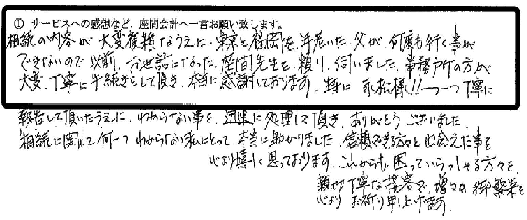 ① サービスへの感想など、座間会計へ一言お願い致します。
相続の内容が大変複雑なうえに、東京と福岡を、手広いた父が、何度も行く事が
できないので以前、お世話になった、座間先生を頼り、伺いました。事務所の方々が
大変、丁寧に手続きをして頂き、本当に感謝しております。特に 永松様!! 一つ一つ丁寧に
報告して頂いたうえに、わからない事を、迅速に処理して頂き、ありがとうございました。
相続に関して何一つわからない私にとって本当に助かりました。信頼できる方と出会えた事を
心より嬉しく思っております。これからも、困っていらっしゃる方々を、
親切丁寧な接客で、増々の御繁栄を
心よりお祈り申し上げます。